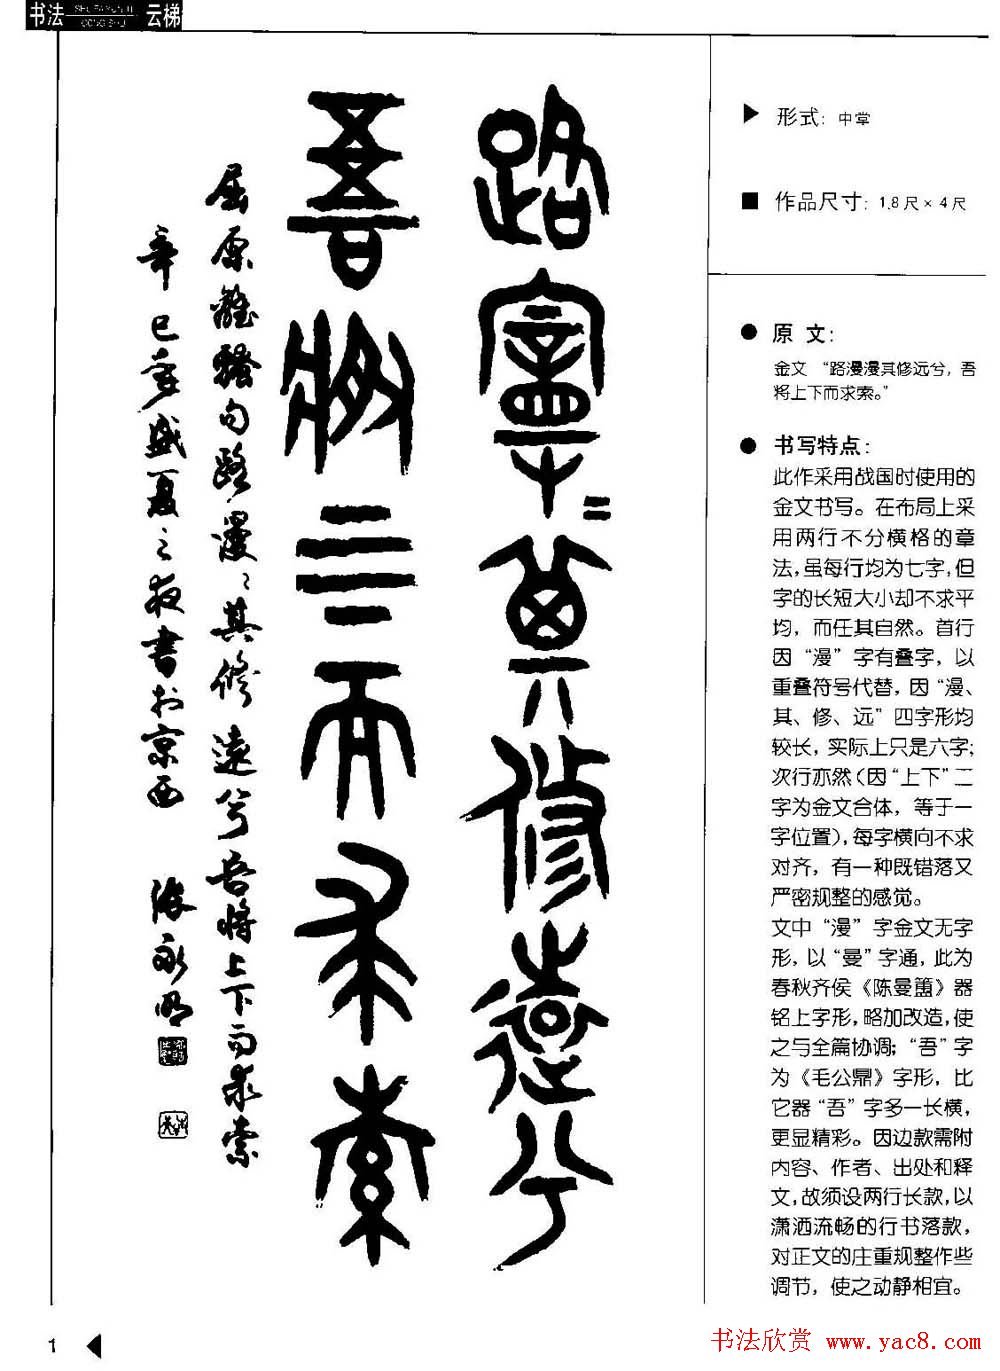 书法 云梯
路漫〻其修远兮
吾将上下而求索
屈原離騷句路漫〻其修遠兮吾将上下而求索
辛巳年盛夏之夜書於京西 张永明
形式：中堂
作品尺寸：1.8尺×4尺
原文：
金文 “路漫漫其修远兮，吾
将上下而求索。”
书写特点：
此作采用战国时使用的
金文书写。在布局上采
用两行不分横格的章
法，虽每行均为七字，但
字的长短大小却不求平
均，而任其自然。首行
因“漫”字有叠字，以
重叠符号代替，因“漫、
其、修、远”四字形均
较长，实际上只是六字；
次行亦然（因“上下”二
字为金文合体，等于一
字位置），每字横向不求
对齐，有一种既错落又
严密规整的感觉。
文中“漫”字金文无字
形，以“曼”字通，此为
春秋齐侯《陈曼簠》器
铭上字形，略加改造，使
之与全篇协调；“吾”字
为《毛公鼎》字形，比
它器“吾”字多一长横，
更显精彩。因边款需附
内容、作者、出处和释
文，故须设两行长款，以
潇洒流畅的行书落款，
对正文的庄重规整作些
调节，使之动静相宜。
1
书法欣赏 www.yac8.com